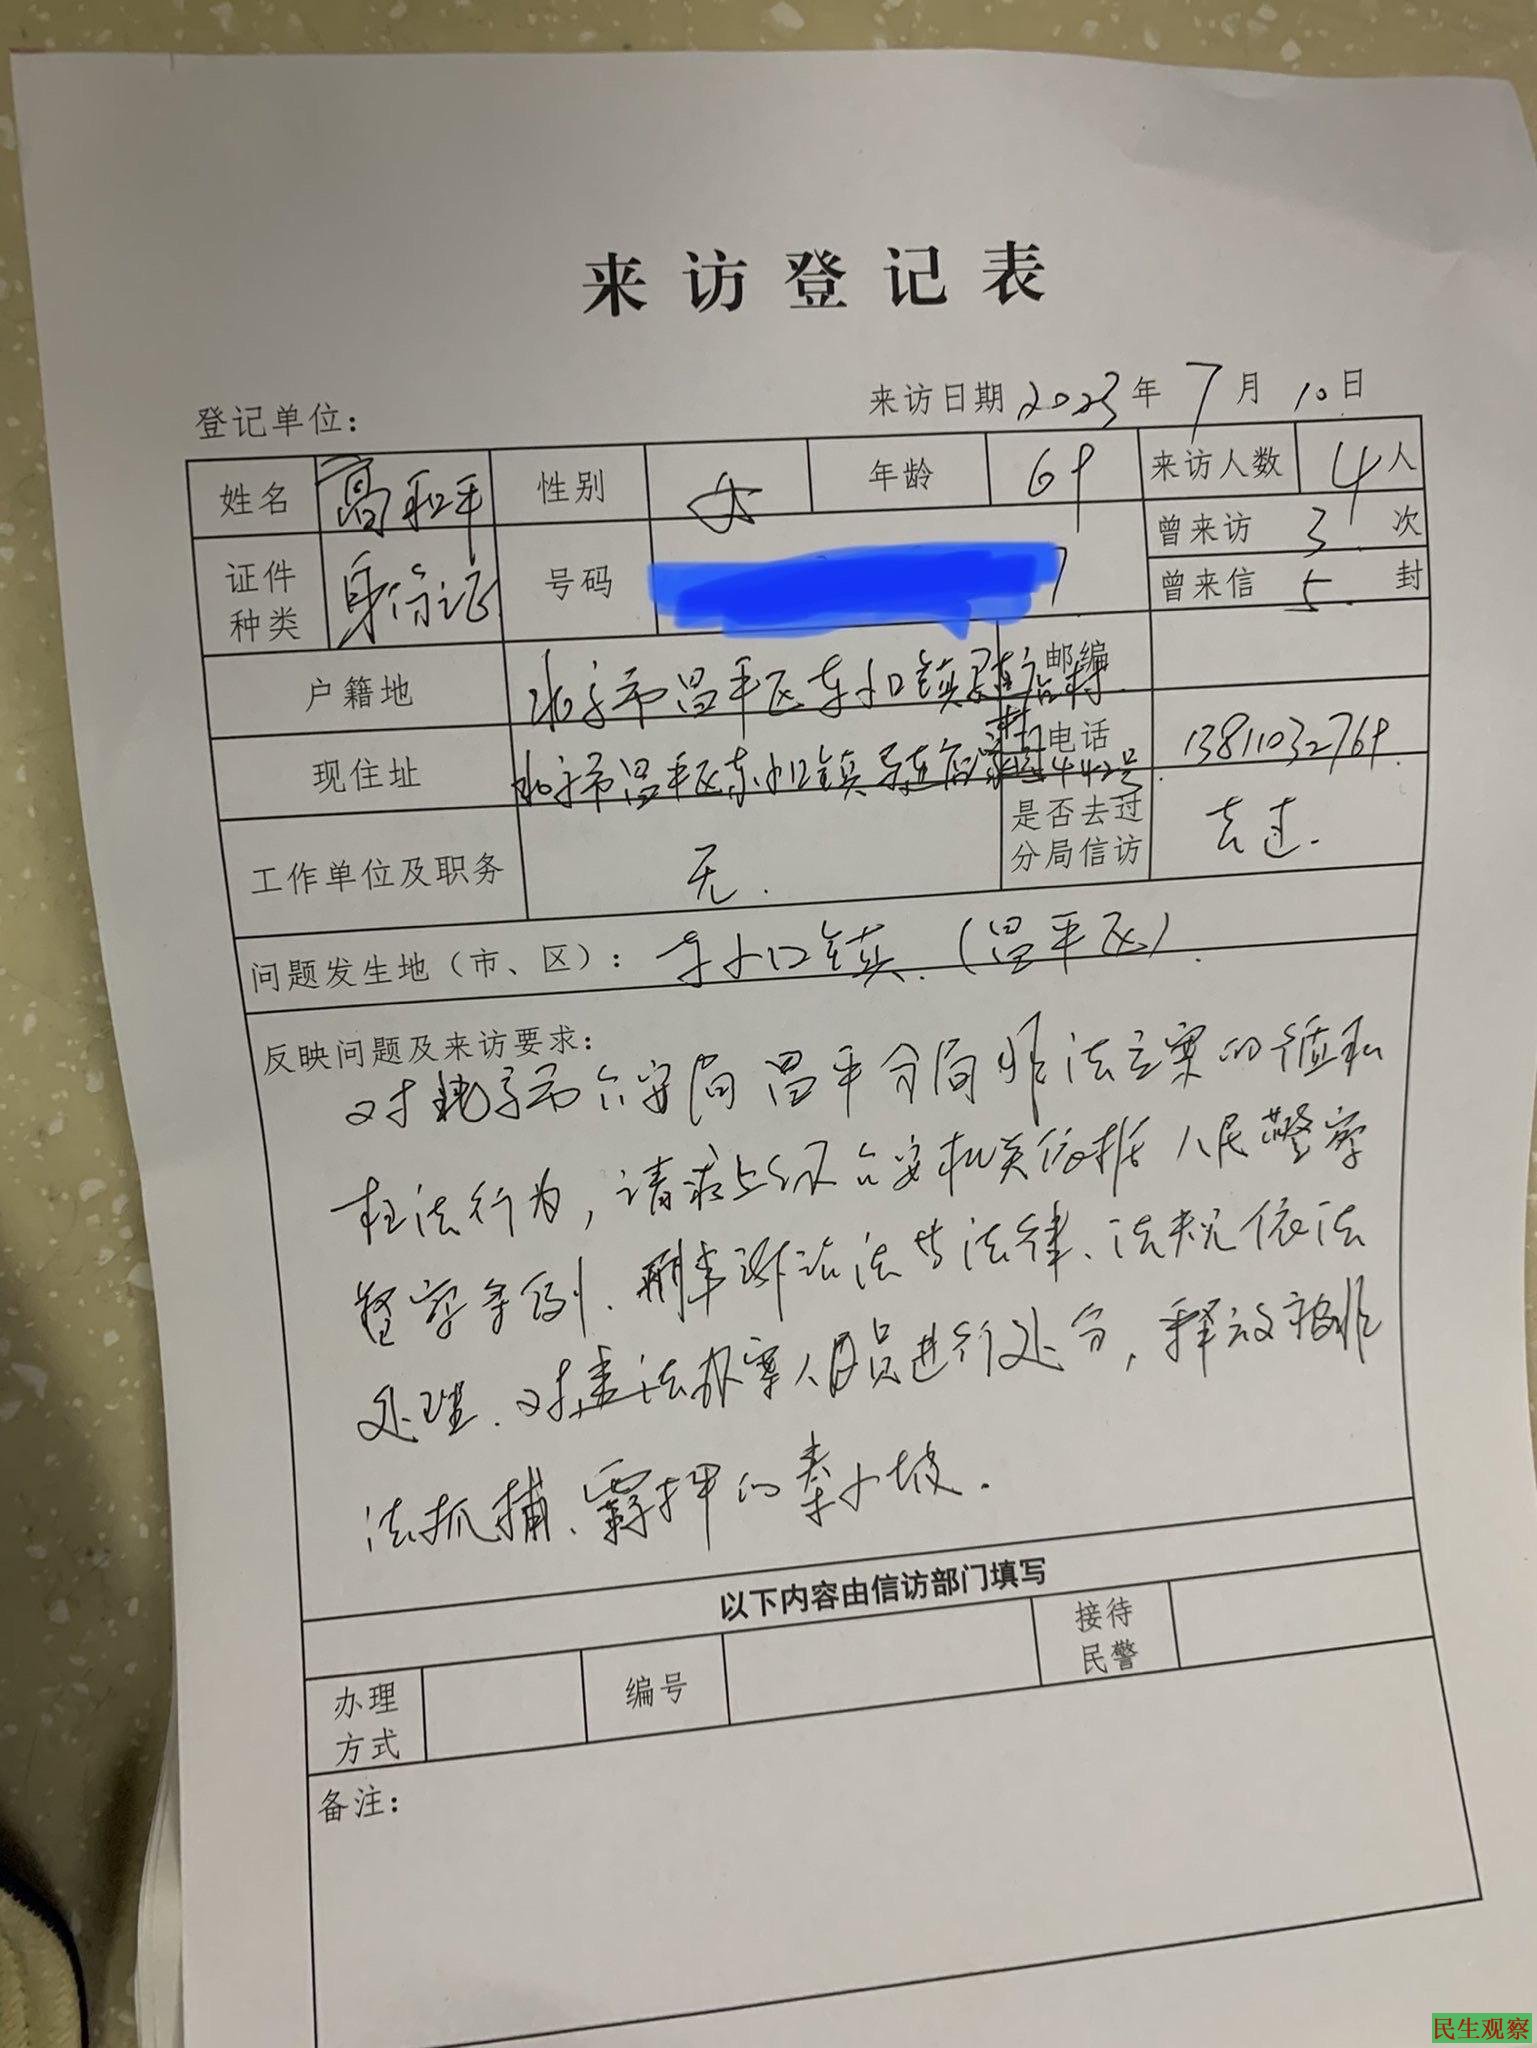 来访登记表
登记单位： 来访日期 2023 年 7 月 10 日
姓名 高和平 性别 女 年龄 69 来访人数 4 人
曾来访 3 次
证件种类 身份证 号码 7 曾来信 5 封
户籍地 北京市昌平区东小口镇 店村 邮编
现住址 北京市昌平区东小口镇 店 442号 电话 13811032769
工作单位及职务 无. 是否去过分局信访 去过.
问题发生地（市、区）： 东小口镇.（昌平区）.
反映问题及来访要求：
对北京市公安局昌平分局非法立案的循私
枉法行为，请求上级公安机关依据人民警察
督察条例、刑事诉讼法等法律、法规依法
处理. 对违法办案人员进行处分，释放被非
法抓捕、羁押的秦小坡.
以下内容由信访部门填写
办理方式 编号 接待民警
备注：
民生观察